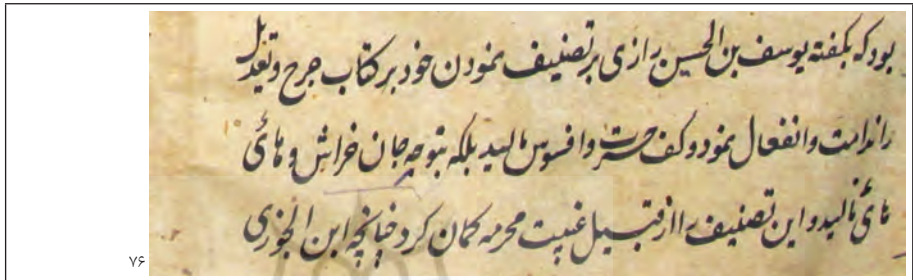 بود که بکفته یوسف بن الحسین رازی بر تصنیف نمودن خود بر کتاب جرح و تعدیل
راندامت و انفعال نمود و کف حسرت و افسوس مالید بلکه بتوجه جان خراش و های
های نالید و این تصنیف را از قبیل غیبت محرمه کمان کرد چنانچه ابن الجوزی
۷۶